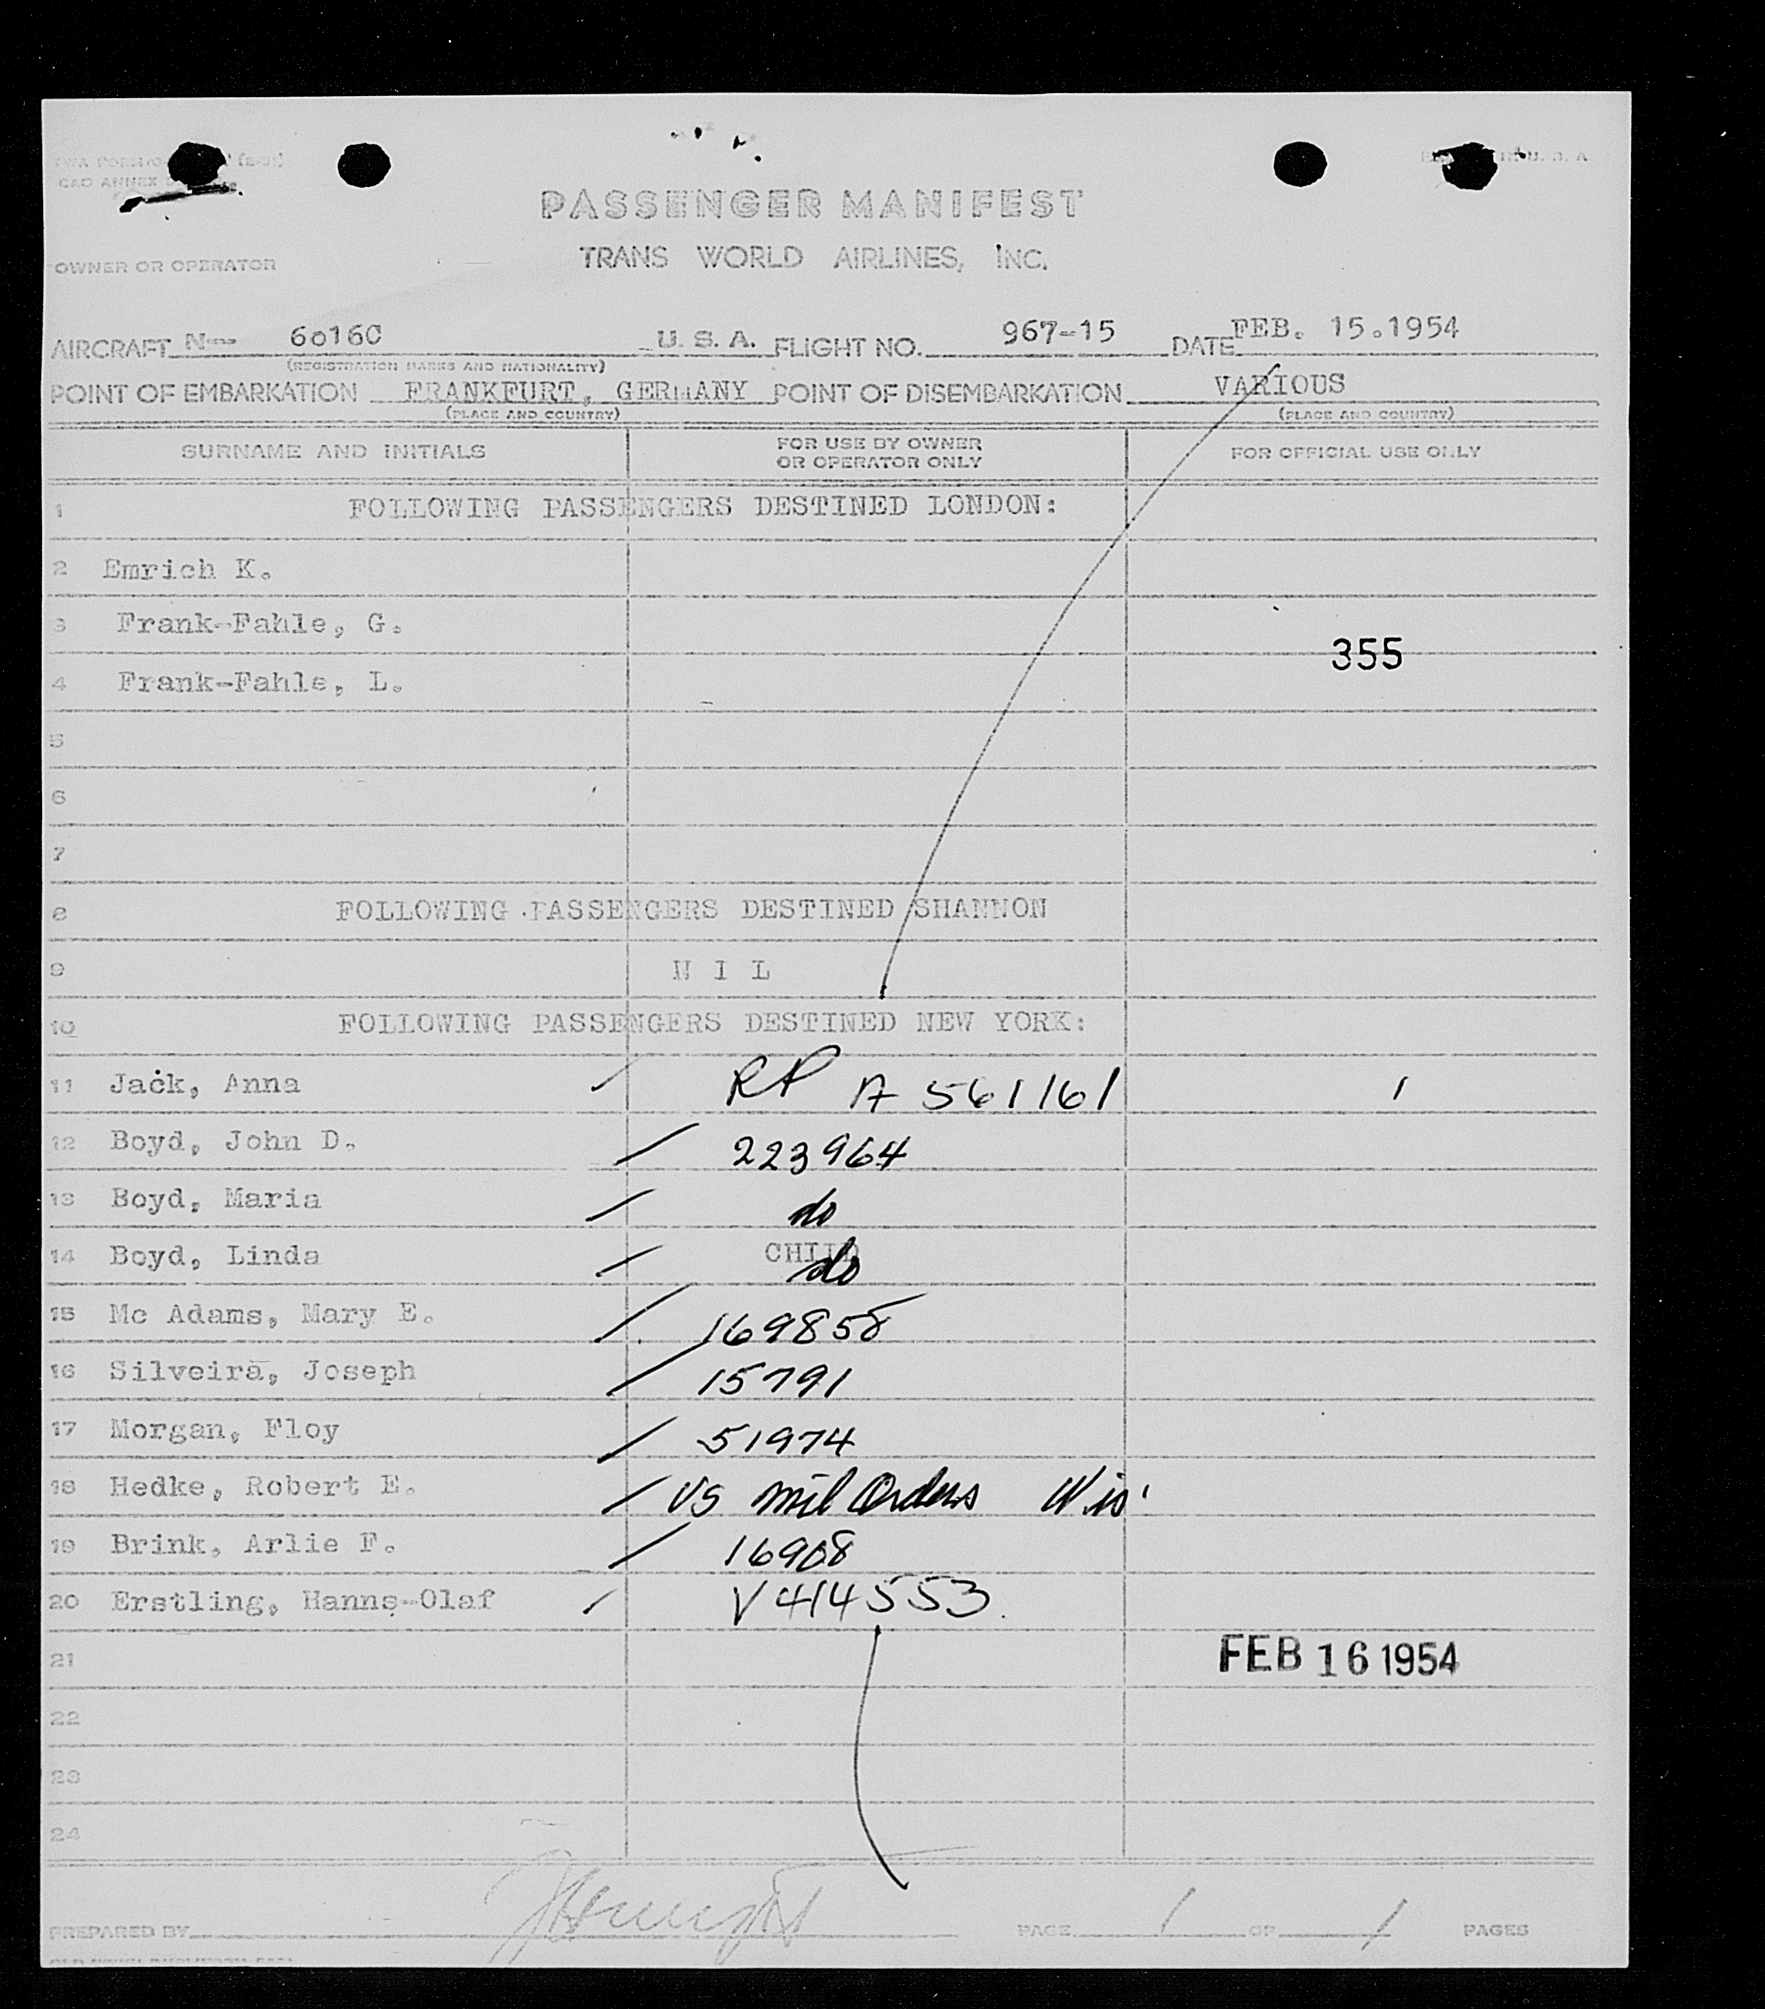 PASSENGER MANIFEST
TRANS WORLD AIRLINES, INC.
OWNER OR OPERATOR
AIRCRAFT N--- 6016C U. S. A. FLIGHT NO. 967-15 DATE FEB. 15.1954
(REGISTRATION MARKS AND NATIONALITY)
POINT OF EMBARKATION FRANKFURT, GERMANY POINT OF DISEMBARKATION VARIOUS
(PLACE AND COUNTRY) (PLACE AND COUNTRY)
SURNAME AND INITIALS FOR USE BY OWNER OR OPERATOR ONLY FOR OFFICIAL USE ONLY
1 FOLLOWING PASSENGERS DESTINED LONDON:
2 Emrich K.
3 Frank-Fahle, G.
355
4 Frank-Fahle, L.
5
6
7
8 FOLLOWING PASSENGERS DESTINED SHANNON
9 N I L
10 FOLLOWING PASSENGERS DESTINED NEW YORK:
11 Jack, Anna RP A 561161 1
12 Boyd, John D. 223964
13 Boyd, Maria do
14 Boyd, Linda CHILD do
15 Mc Adams, Mary E. 169858
16 Silveira, Joseph 15791
17 Morgan, Floy 51974
18 Hedke, Robert E. US mil Orders Wis'
19 Brink, Arlie F. 16908
20 Erstling, Hanns-Olaf V 414553
21 FEB 16 1954
22
23
24
PREPARED BY PAGE 1 OF 1 PAGES